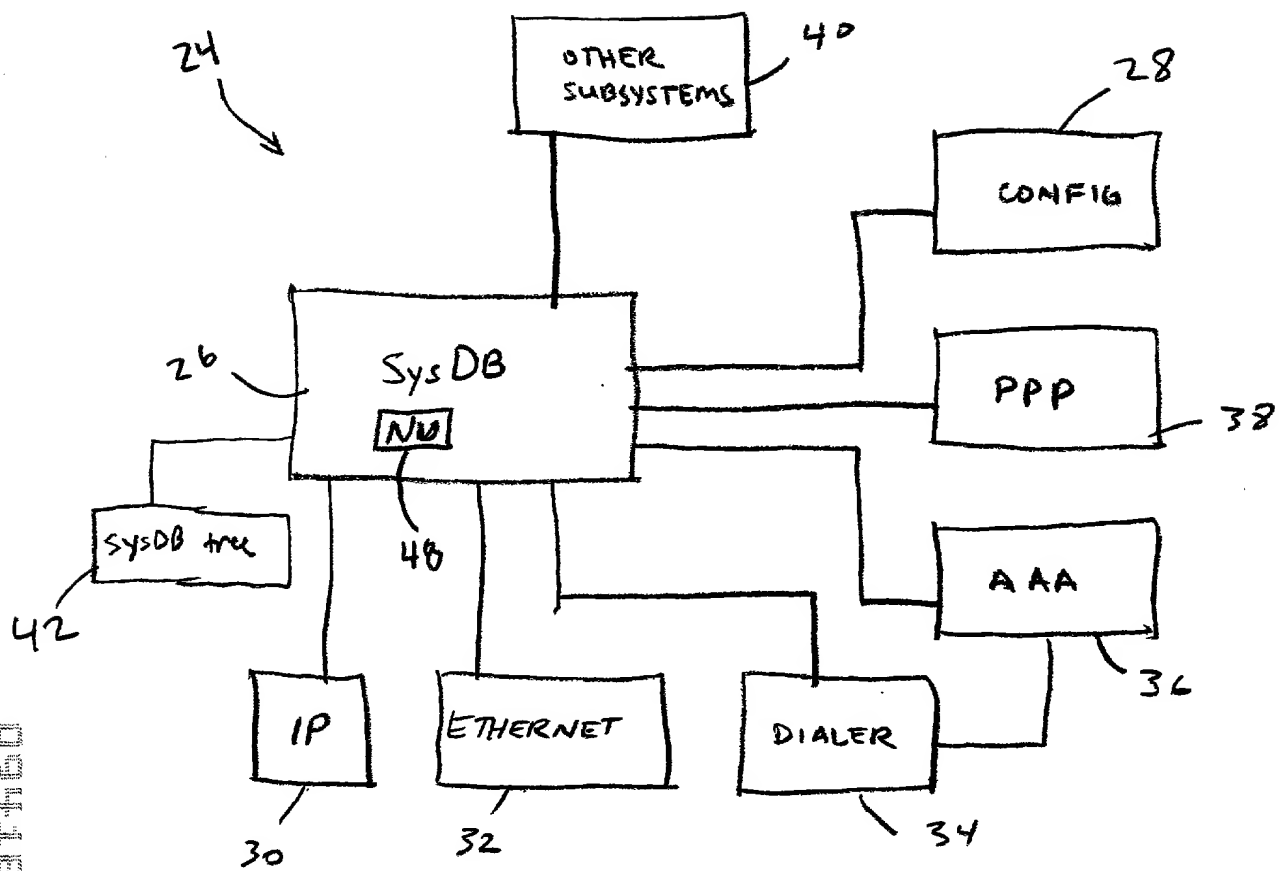 24
OTHER
SUBSYSTEMS
40
28
CONFIG
26
SysDB
PPP
38
48
SysDB tree
42
AAA
36
IP
30
ETHERNET
32
DIALER
34